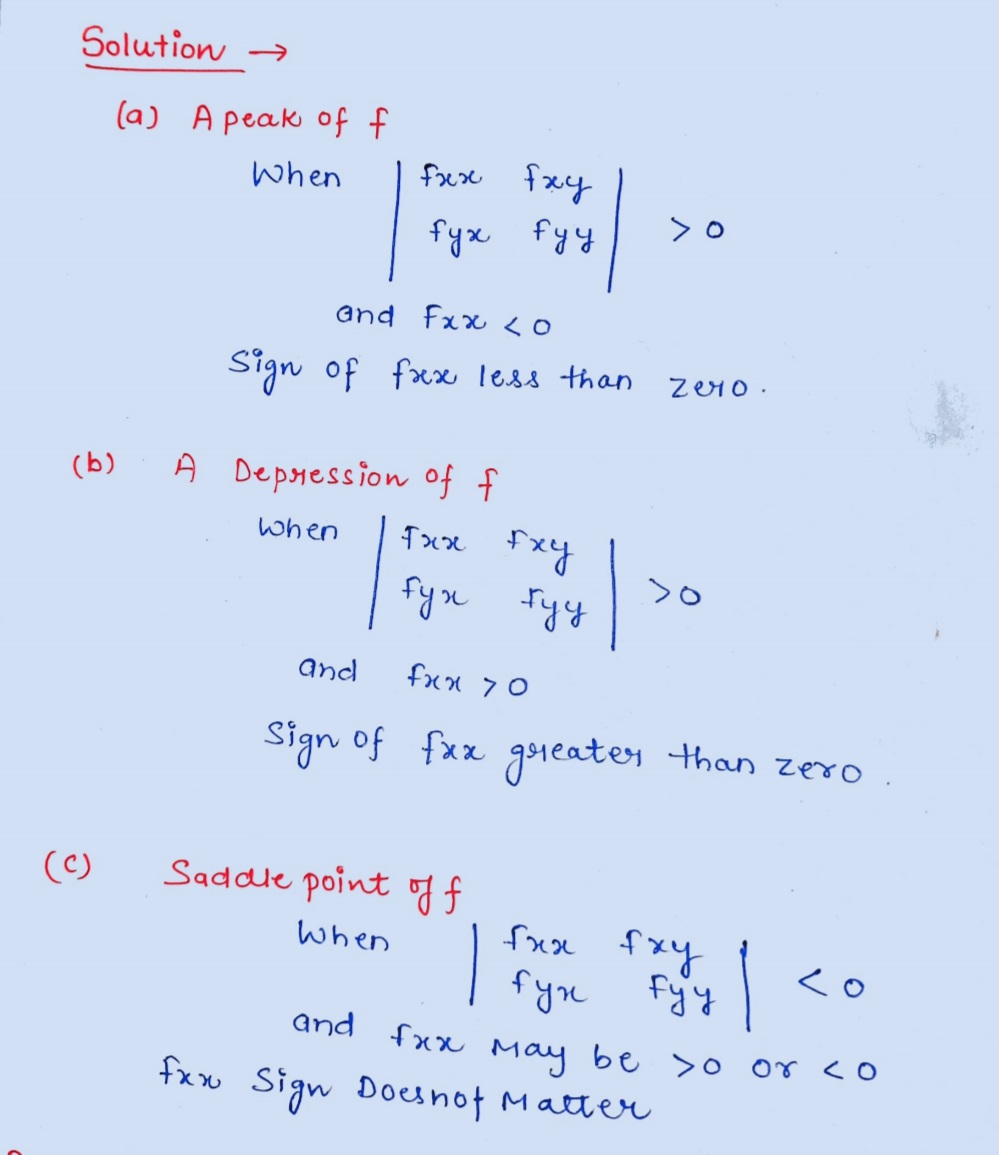 Solution →
(a) A peak of f
When | fxx fxy |
| fyx fyy | > 0
and Fxx < 0
Sign of fxx less than zero.
(b) A Depression of f
when | fxx fxy |
| fyx fyy | > 0
and fxx > 0
Sign of fxx greater than zero.
(c) Saddle point of f
When | fxx fxy |
| fyx Fyy | < 0
and fxx may be > 0 or < 0
fxx Sign Doesnot Matter